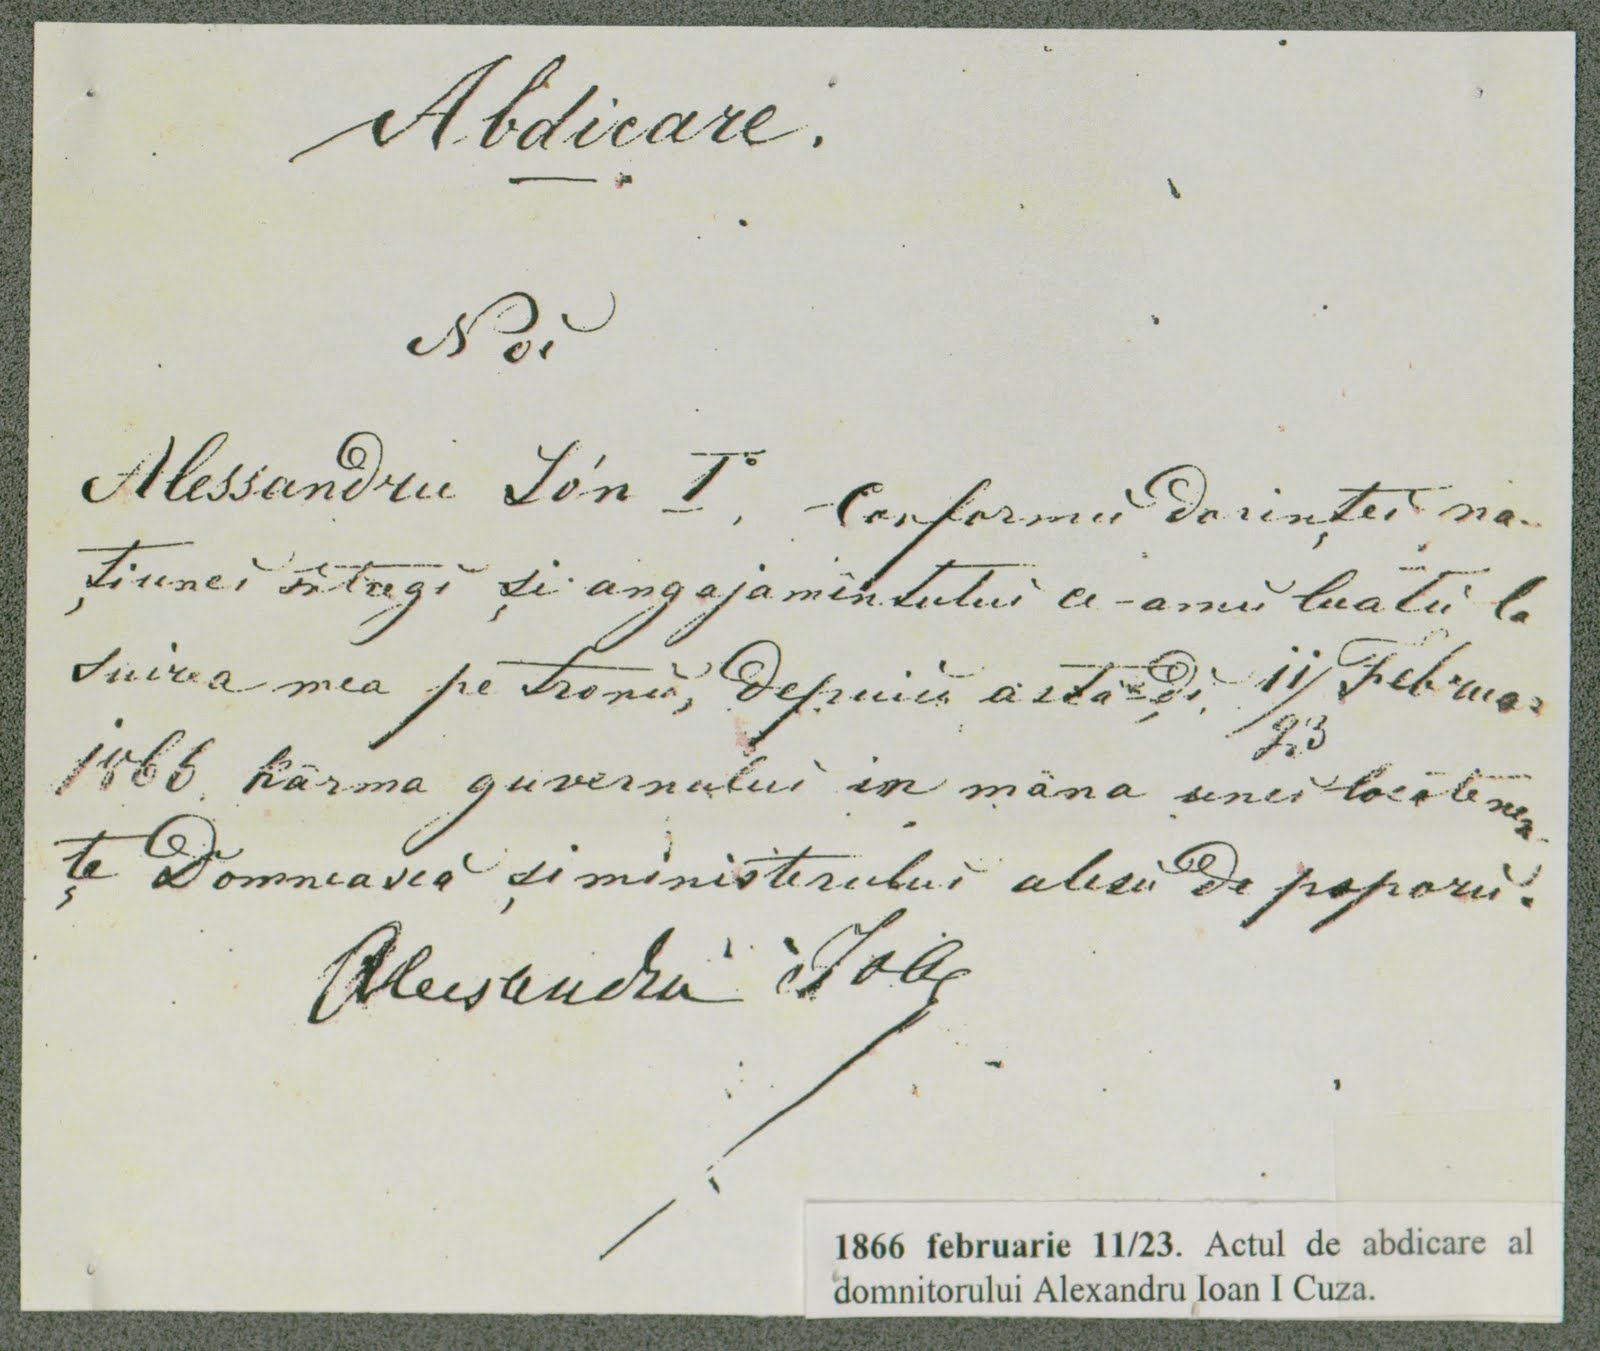 Abdicare.
Noi
Alessandru Ión I°, Conformŭ Dorinței na-
țiunei íntregi și angajamîntului ce-amŭ luatŭ la
suirea mea pe tronŭ, depuiŭ astă-Di, 11/23 Februar
1866. Kârma guvernului in mâna unei locotenen-
țe Domnească și ministerului alesŭ De poporŭ.
Alessandru Ioan
1866 februarie 11/23. Actul de abdicare al
domnitorului Alexandru Ioan I Cuza.